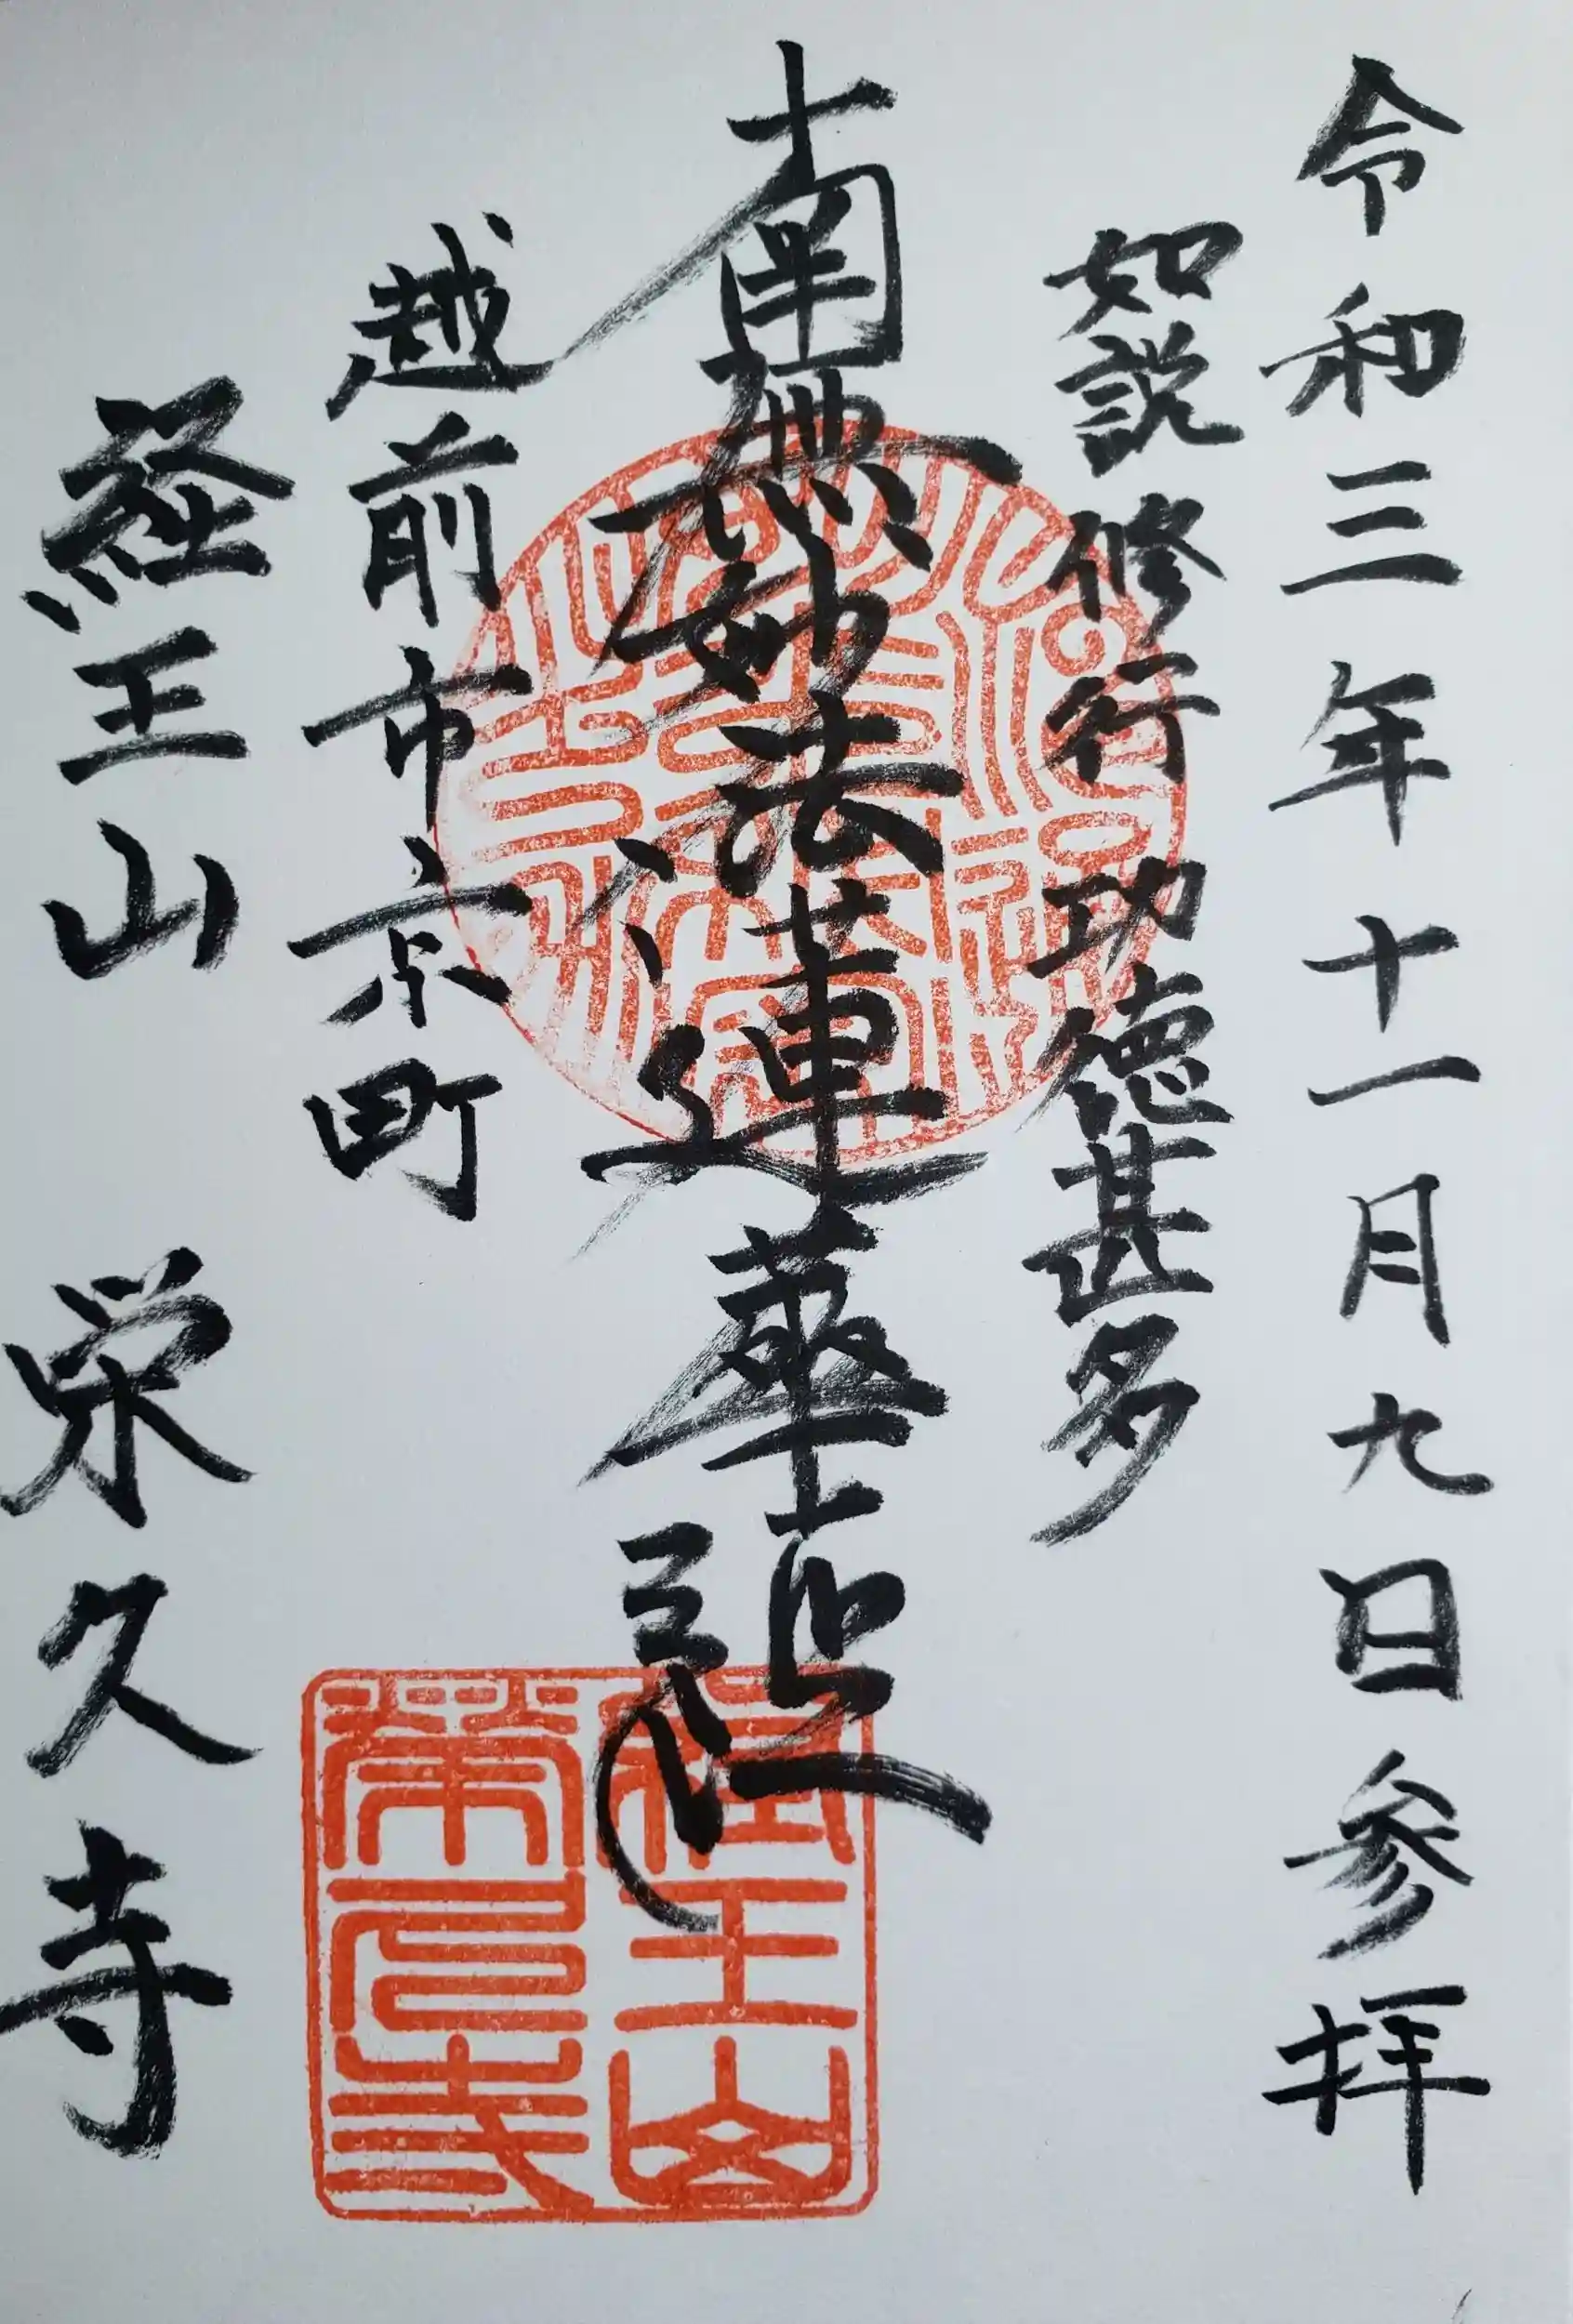 令和三年十一月九日参拝
如説修行 功徳甚多
南無妙法蓮華経
越前市京町
経王山 栄久寺
経王山
栄久寺